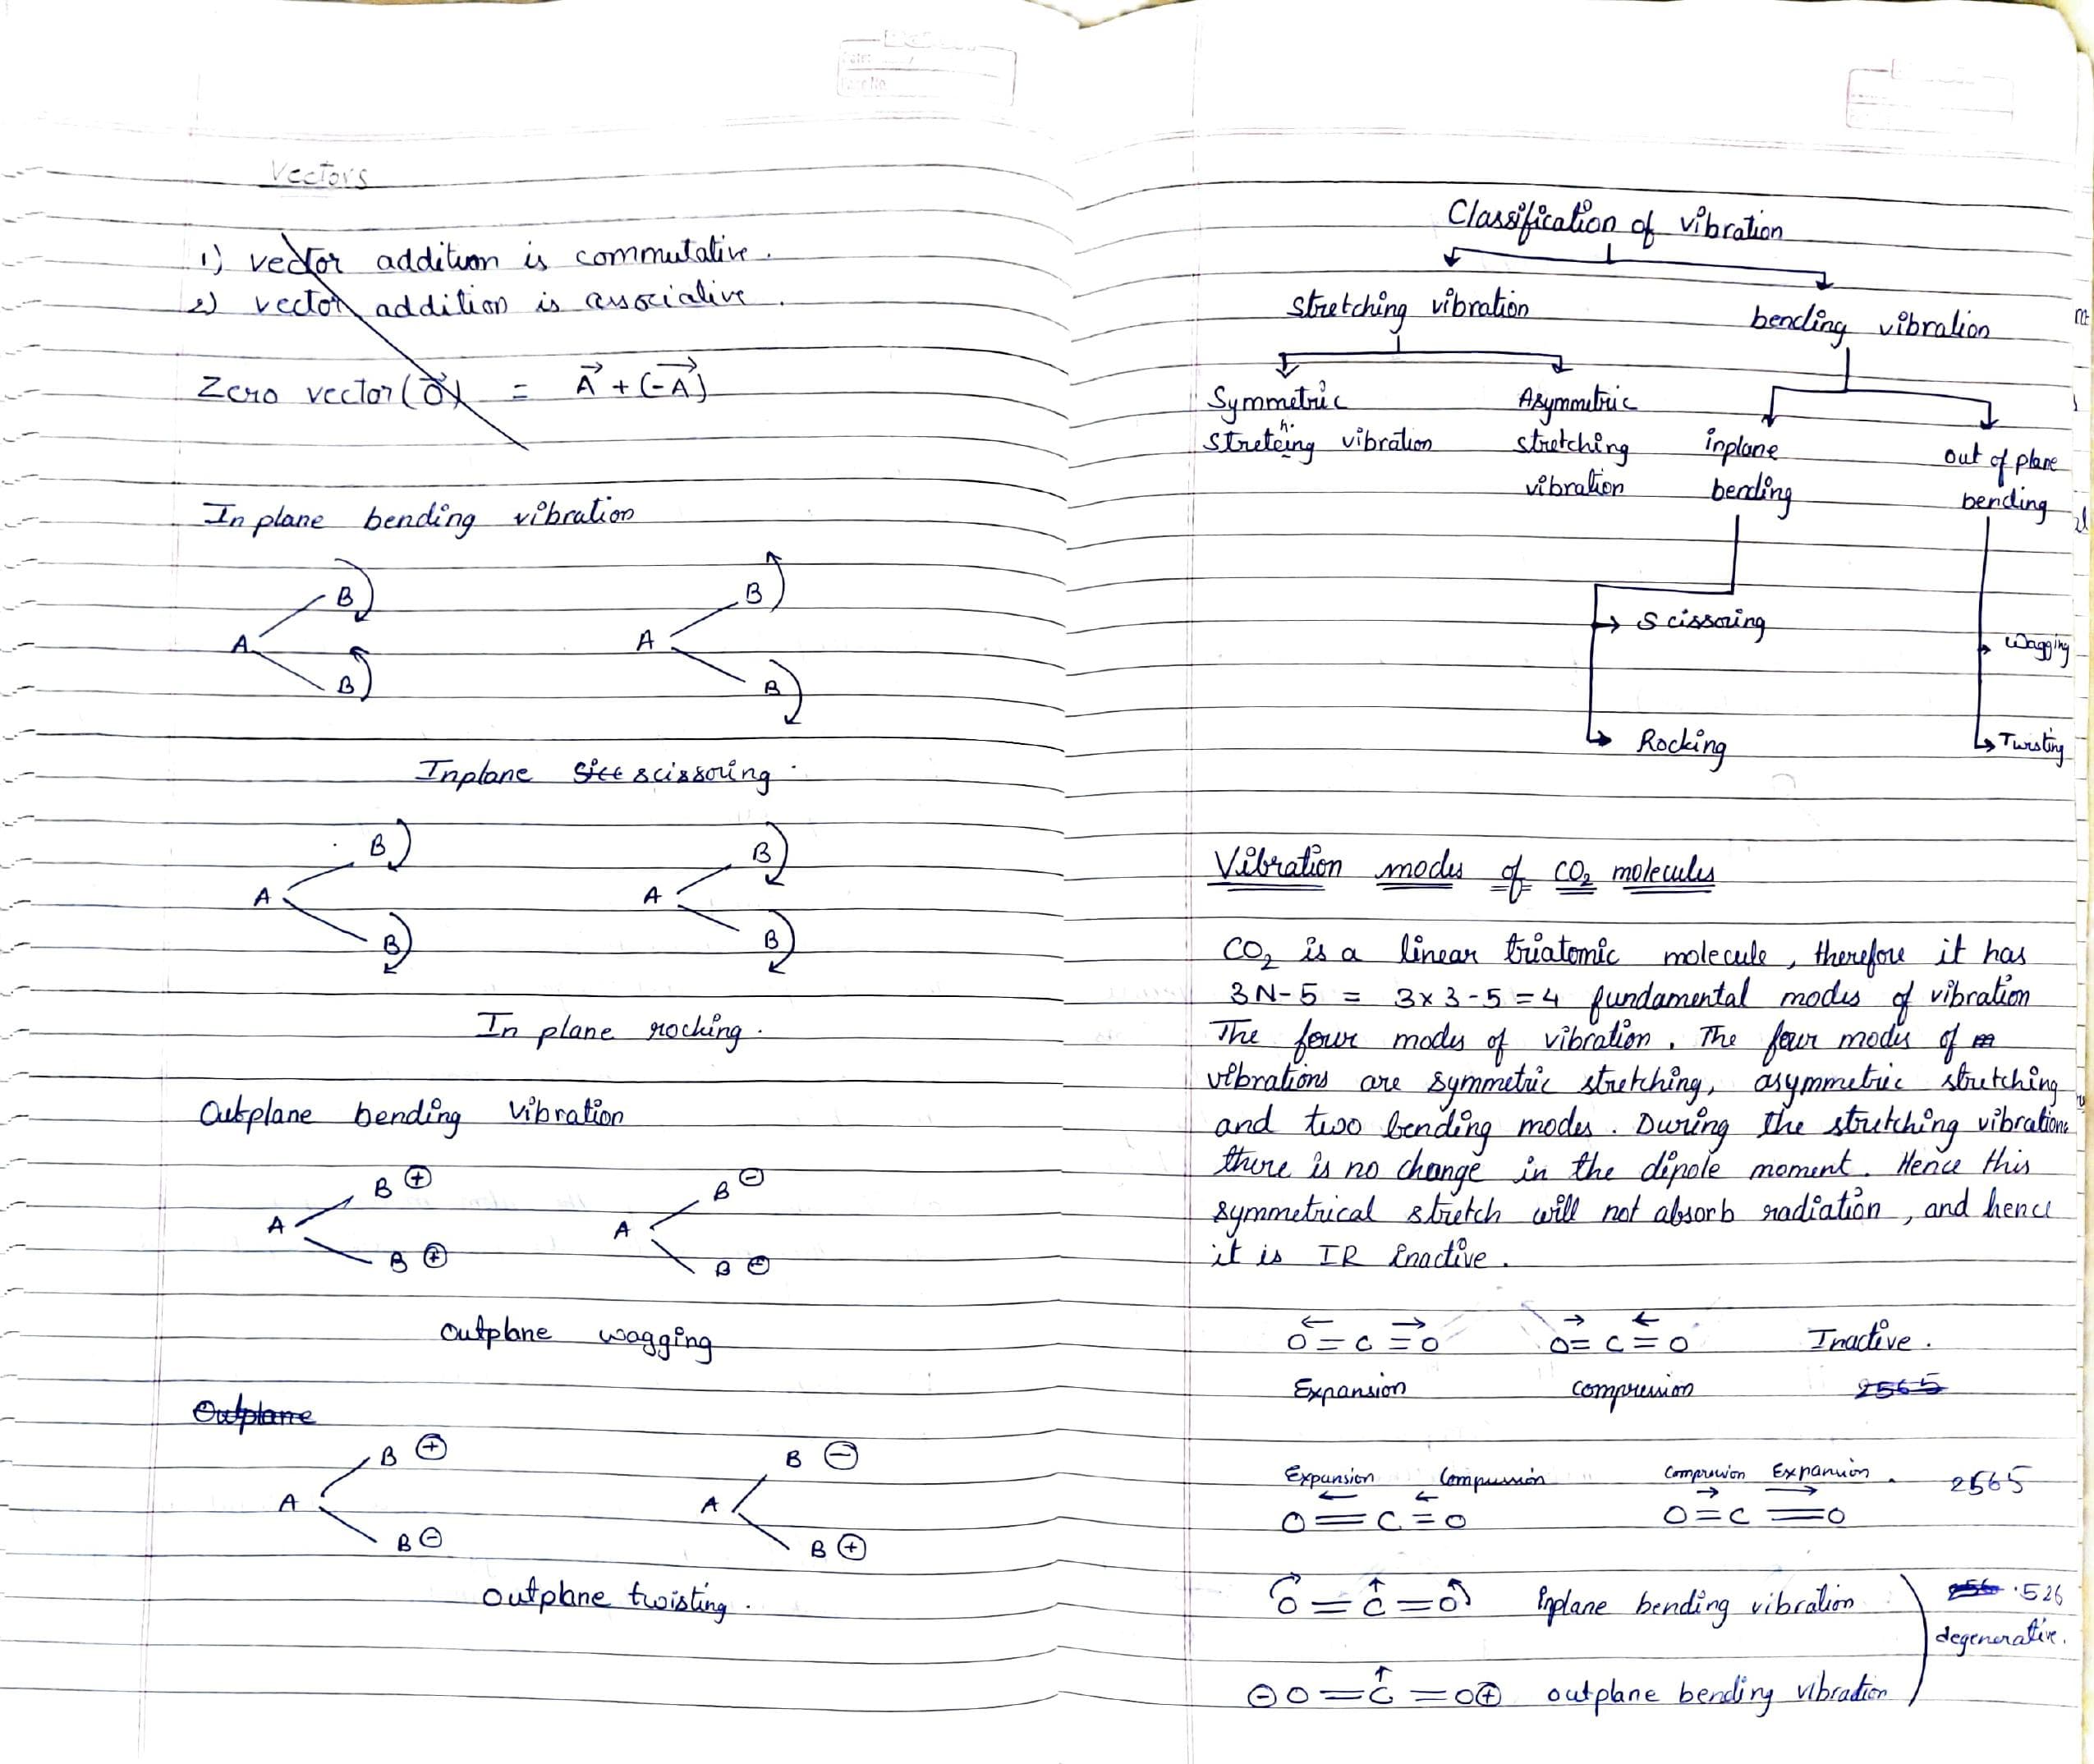 Vectors
1) vector addition is commutative.
2) vector addition is associative.
Zero vector (O⃗) = A⃗ + (-A⃗)
In plane bending vibration
B B
A A
B B
Inplane sice scissoring.
B B
A A
B B
In plane rocking.
Outplane bending vibration
B ⊕ B ⊖
A A
B ⊕ B ⊖
outplane wagging
Outplane
B ⊕ B ⊖
A A
B ⊖ B ⊕
outplane twisting.
Classification of vibration
stretching vibration bending vibration
Symmetric Asymmetric
stretching vibration stretching inplane out of plane
vibration bending bending
Scissoring
Wagging
Rocking Twisting
Vibration modes of CO₂ molecules
CO₂ is a linear triatomic molecule, therefore it has
3N-5 = 3x3-5=4 fundamental modes of vibration
The four modes of vibration. The four modes of m
vibrations are symmetric stretching, asymmetric stretching
and two bending modes. During the stretching vibrations
there is no change in the dipole moment. Hence this
symmetrical stretch will not absorb radiation, and hence
it is IR inactive.
← → → ←
O=C=O O=C=O Inactive.
Expansion compression 2565
Expansion Compression Compression Expansion. 2565
← ← → →
O=C=O O=C=O
O=C=O inplane bending vibration 256 .526
degenerative.
⊖O=C=O⊕ outplane bending vibration